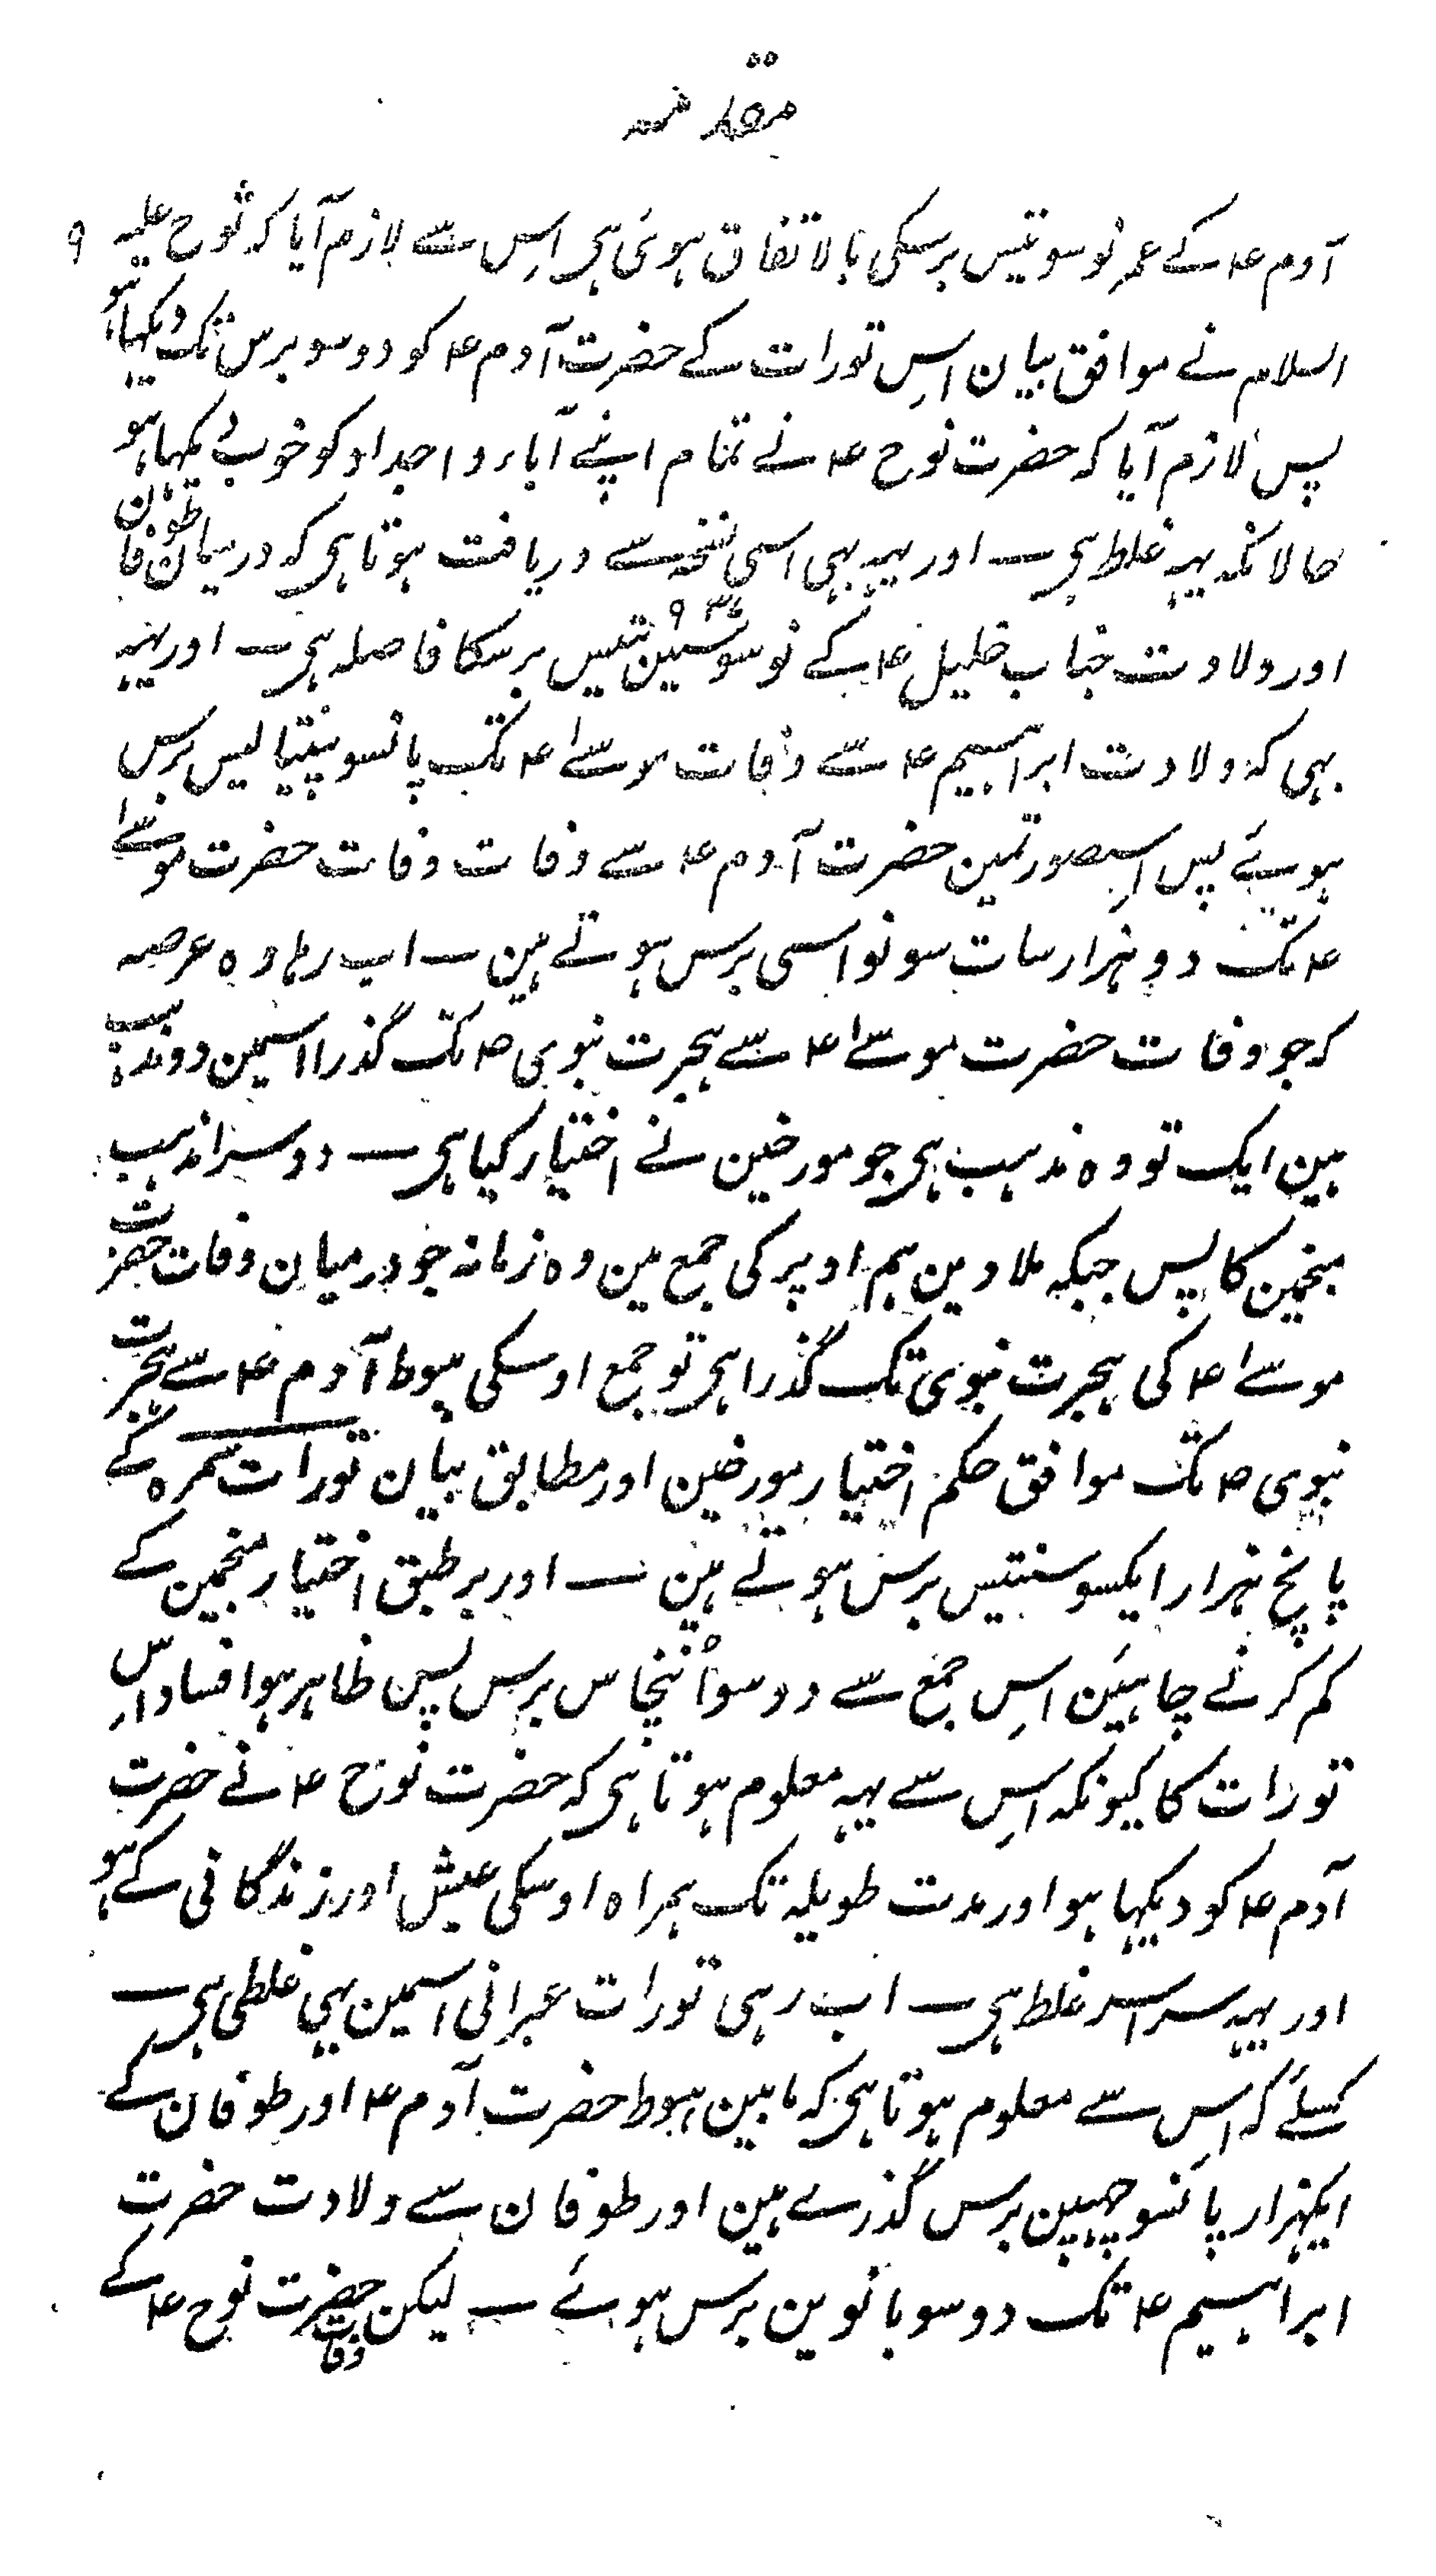 مقدمہ
۹
آدم ۴ کے عمر نوسو تیس برسکی بالاتفاق ہوئی ہی اِس سے لازم آیا کہ نوح علیہ
السلام نے موافق بیان اِس تورات کے حضرت آدم ۴ کو دو سو برس تک دیکھا ہو
پس لازم آیا کہ حضرت نوح ۴ نے تمام اپنے آباء و اجداد کو خوب دیکہا ہو
حالانکہ یہہ غلط ہی ــ اور یہہ بہی اسی نسخہ سے دریافت ہوتا ہی کہ درمیان طوفان
اور ولادت جناب خلیل ۴ کے نوسو سینتیس ۹۳۷ برسکا فاصلہ ہی ــ اور یہہ
بہی کہ ولادت ابراہیم ۴ سے وفات موسےٰ ۴ تک پانسو پینتالیس برس
ہوئے پس اِسصورتمین حضرت آدم ۴ سے وفات وفات حضرت موسےٰ
۴ تک دو ہزار سات سو نواسی برس ہوتے ہین ــ اب رہا وہ عرصہ
کہ جو وفات حضرت موسےٰ ۴ سے ہجرت نبوی ص تک گذرا اسمین دو مذہب
ہین ایک تو وہ مذہب ہی جو مورخین نے اختیار کیا ہی ــ دوسرا مذہب
منجمین کا پس جبکہ ملا دین ہم اوپر کی جمع مین وہ زمانہ جو درمیان وفات حضرت
موسےٰ ۴ کی ہجرت نبوی تک گذرا ہی تو جمع اوسکی ہبوط آدم ۴ سے ہجرت
نبوی ص تک موافق حکم اختیار مورخین اور مطابق بیان تورات سمرہ کے
پانچ ہزار ایکسو سینتیس برس ہوتے ہین ــ اور بر طبق اختیار منجمین کے
کم کرنے چاہئین اِس جمع سے دو سو اُنچاس برس پس ظاہر ہوا فساد اِس
تورات کا کیونکہ اِس سے یہہ معلوم ہوتا ہی کہ حضرت نوح ۴ نے حضرت
آدم ۴ کو دیکہا ہو اور مدت طویلہ تک ہمراہ اوسکی عیش اور زندگانی کے ہو
اور یہہ سراسر غلط ہی ــ اب رہی تورات عبرانی اسمین بہی غلطی ہی ــ
کسلئے کہ اِس سے معلوم ہوتا ہی کہ مابین ہبوط حضرت آدم ۴ اور طوفان کے
ایکہزار پانسو چہپن برس گذرے ہین اور طوفان سے ولادت حضرت
ابراہیم ۴ تک دو سو بانوین برس ہوئے ــ لیکن حضرت نوح ۴ کے
وفات